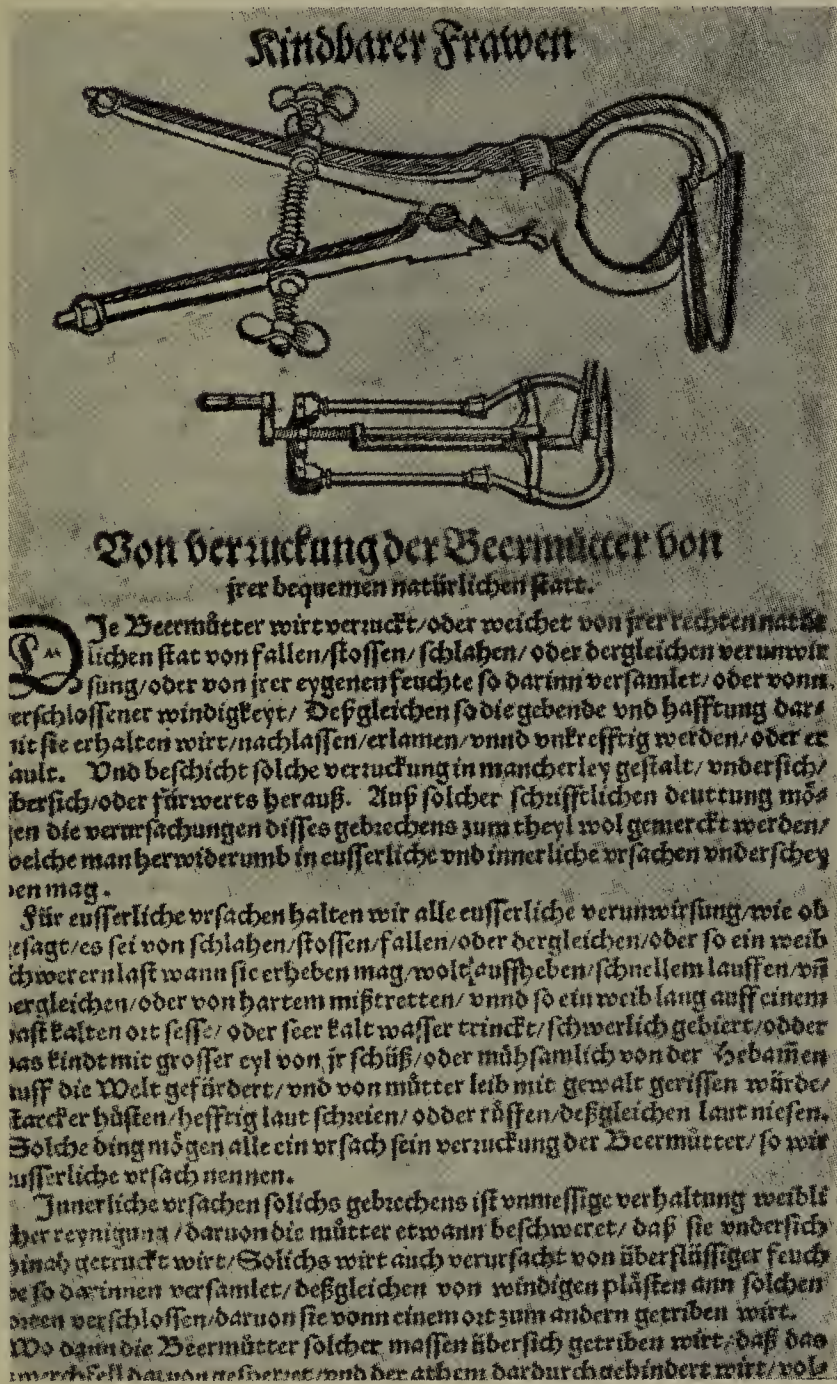 Kindbarer Frawen
Von verruckung der Beermůtter von
jrer bequemen natürlichen statt.
DJe Beermůtter wirt verruckt/oder weichet von jrer rechten natür
lichen stat von fallen/stossen/schlahen/oder dergleichen verunwir
sung/oder von jrer eygenen feuchte so darinn versamlet/oder vonn
erschlossener windigkeyt/ Deßgleichen so die gebende vnd hafftung dar⸗
nit sie erhalten wirt/nachlassen/erlamen/vnnd vnkrefftig werden/oder er
ault. Vnd beschicht solche verruckung in mancherley gestalt/vndersich/
bersich/oder fürwerts herauß. Auß solcher schrifftlichen deuttung mö⸗
en die verursachungen disses gebrechens zum theyl wol gemerckt werden/
elche man herwiderumb in eusserliche vnd innerliche vrsachen vnderschey
en mag.
Für eusserliche vrsachen halten wir alle eusserliche verunwirsung/wie ob
esagt/es sei von schlahen/stossen/fallen/oder dergleichen/oder so ein weib
chwerern last wann sie erheben mag/wolt auffheben/schnellem lauffen/vñ
ergleichen/oder von hartem mißtretten/vnnd so ein weib lang auff einem
ast kalten ort sesse/oder seer kalt wasser trinckt/schwerlich gebiert/odder
as kindt mit grosser eyl von jr schüß/oder mühsamlich von der Hebam̃en
uff die Welt gefürdert/vnd von můtter leib mit gewalt gerissen würde/
tarcker hůsten/hefftig laut schreien/odder růffen/deßgleichen laut niesen.
Solche ding mögen alle ein vrsach sein verruckung der Beermůtter/so wir
usserliche vrsach nennen.
Jnnerliche vrsachen solichs gebrechens ist vnmessige verhaltung weibli
cher reynigung/daruon die můtter etwann beschweret/daß sie vndersich
hinab getruckt wirt/Solichs wirt auch verursacht von überflüssiger feuch
te so darinnen versamlet/deßgleichen von windigen plästen ann solchen
orten verschlossen/daruon sie vonn einem ort zum andern getriben wirt.
Wo dann die Beermůtter solcher massen übersich getriben wirt/daß das
daruon gesperret/vnd der athem dardurch gehindert wirt/